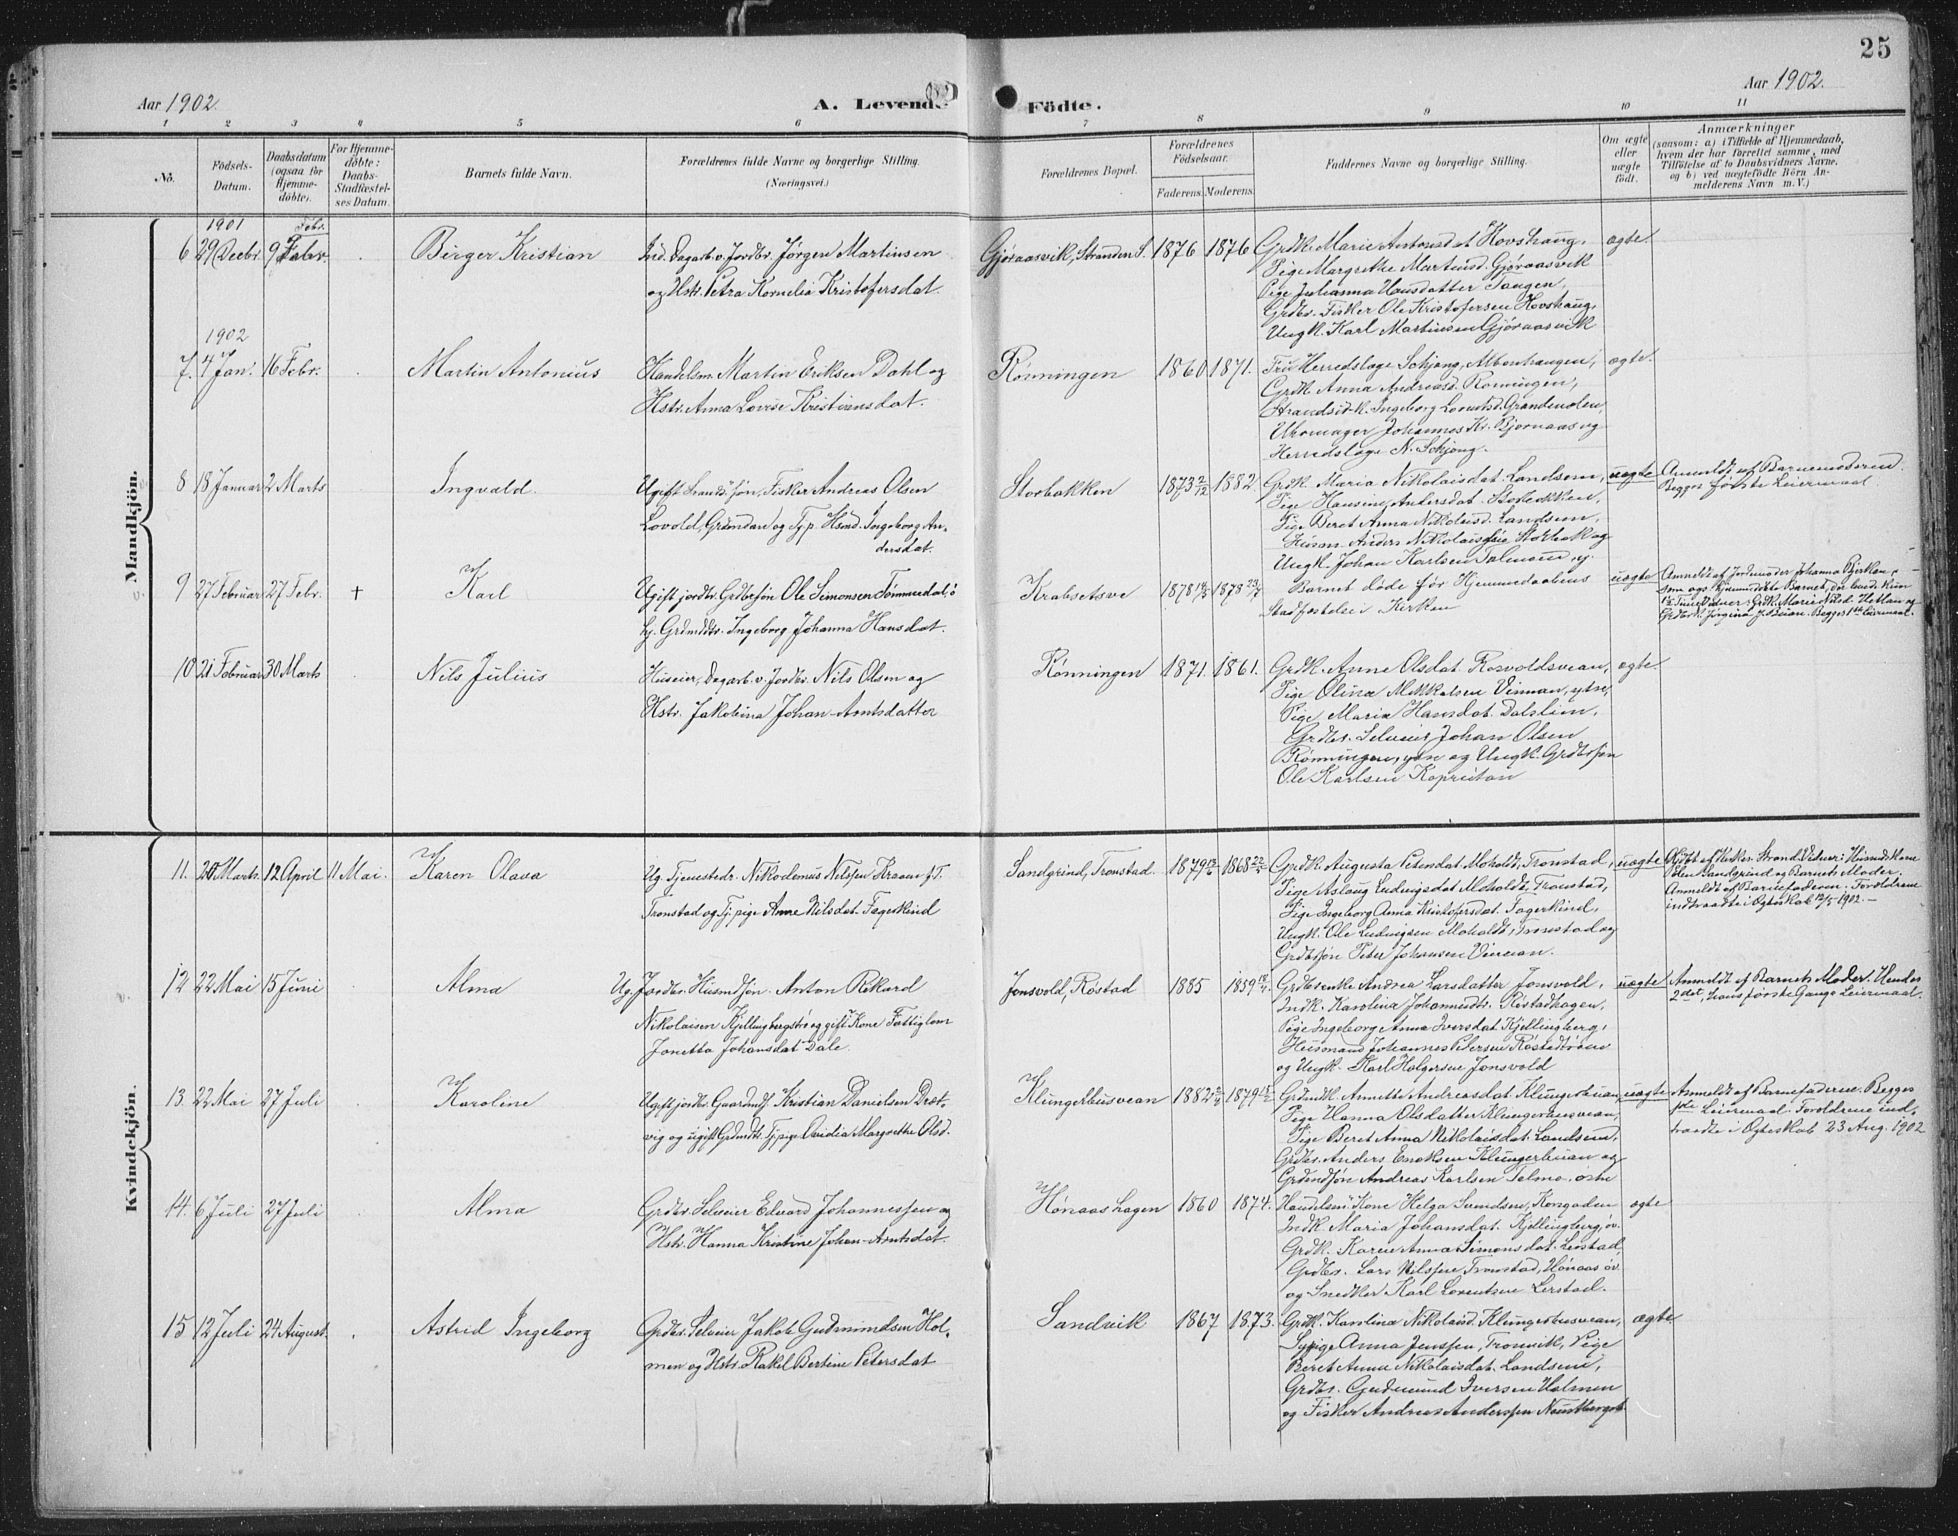 25
Aar 1902.
A. Levende
Födte.
Aar 1902.
1 2 3 4 5 6 7 8 9 10 11
No.
Födsels-
Datum.
Daabsdatum
(ogsaa for
Hjemme-
döbte).
For Hjemme-
döbte:
Daabs-
Stadfæstel-
ses Datum.
Barnets fulde Navn.
Forældrenes fulde Navne og borgerlige Stilling.
(Næringsvei.)
Forældrenes Bopæl.
Forældrenes
Födselsaar.
Faderens. Moderens.
Faddernes Navne og borgerlige Stilling.
Om ægte
eller
uægte
födt.
Anmærkninger
(saasom: a) i Tilfælde af Hjemmedaab,
hvem der har forrettet samme, med
Tilföielse af to Daabsvidners Navne.
og b) ved uægtefödte Börn An-
melderens Navn m. V.)
Mandkjön.
1901
6 29 Decbr. 9 Febr.
Birger Kristian
Ind. Dagarb. v. Jordbr. Jørgen Martinsen
og Hstr. Petra Kornelia Kristofersdat.
Gjøraasvik, Stranden S. 1876 1876
Grdk. Marie Antonsdat Hovshaug,
Pige Margrethe Martinsd. Gjøraasvik
Pige Julianna Hansdatter Tangen,
Grdbr. Fisker Ole Kristofersen Hovshaug,
Ungk. Karl Martinsen Gjøraasvik
ægte.
1902
7. 4 Jan. 16 Febr.
Martin Antonius
Handelsm. Martin Eriksen Dahl og
Hstr. Anna Lovise Kristiansdat.
Rønningen 1860 1871.
Fru Herredslæge Schjong,
Grdk. Anna Andreasd. Rønningen,
Strandsidk. Ingeborg Grandemolen,
Uhrmager Johannes Kr. Bjørnaas og
Herredslæge N. Schjong.
ægte.
8 18 Januar 2 Marts
Ingvald.
Ugift Fisker Andreas Olsen
Løvold, og Tj.p. Ingeborg An-
dersdat.
Storbakken 1873 2/12 1882
Grdk. Maria Nikolaisdat. Landsem,
Pige Hansine Andersdat. Storbakken,
Pige Beret Anna Nikolaisd. Landsem,
Husm. Anders Nikolaisen Storbak og
Ungk. Johan Karlsen
uægte
Anmeldt af Barnemoderen.
Begges første Leiermaal.
9 27 Februar 27 Febr. +
Karl
Ugift jordbr. Grdbrsøn Ole Simonsen Tømmerdal,
Ingeborg Johanna Hansdat.
Krabsetsve 1878 1878 23/7
Barnet døde før Hjemmedaabens
Stadfæstelse i Kirken
uægte
Anmeldt af Jordemoder Johanna Bjerken,
som ogs. hjemmedøbte Barnet, der levede kun
1½ Time Vidner: Grdk. Marie
Begges 1ste Leiermaal.
10 21 Februar 30 Marts
Nils Julius
Huseier, Dagarb. v. Jordbr. Nils Olsen og
Hstr. Jakobina Johan-Arntsdatter
Rønningen 1871. 1861.
Grdk. Anne Olsdat. Rosvoldsvean,
Pige Olina Mikkelsen Vinman, ytre,
Pige Maria Hansdat. Dalslien,
Grdbr. Selveier Johan Olsen
Rønningen, ytre og Ungk. Grdbrsøn
Ole Karlsen
ægte.
Kvindekjön.
11. 20 Marts 12 April 11 Mai.
Karen Olava
Ug. Tjenestedr. Nikodemus Nilssen
Tronstad og Tj. pige Anne Nilsdat. Fagerkind
Sandgrind, Tronstad. 1879 1868 22/5
Grdk. Augusta Petersdat. Moholdt, Tronstad,
Pige Aslaug Ludvigsdat Moholdt, Tronstad,
Pige Ingeborg Anna Kristofersdat. Fagerkind,
Ungk. Ole Ludvigsen Moholdt, Tronstad og
Grdbrsøn Peter Johansen
uægte
Sandgrind og Barnets Moder.
Anmeldt af Barnefaderen. Forældrene
indtraadte i Ægteskab 12/5 1902.—
12 22 Mai 15 Juni
Alma
Ug. Jordbr. Husmdsøn Anton Rikard
Nikolaisen Kjellingbergstrø og gift Kone Fattiglem
Jonetta Johansdat Dale.
Jonsvold, Røstad 1885 1859
Grdbrenke Andrea Larsdatter Jonsvold,
Indk. Karolina Johannesdtr. Ristadhagen,
Pige Ingeborg Anna Iversdat Kjellingberg,
Husmand Johannes Petersen
og Ungk. Karl Holgersen Jonsvold
uægte
Anmeldt af Barnets Moder. Hendes
2det, hans første Gangs Leiermaal.
13. 22 Mai 27 Juli
Karoline
Ugift jordbr. Gaardmds. Kristian Danielsen Dræt-
vig og ugift Grdmdtr. Tj. pige Ovidia Margrethe Olsd.
Klungerbusvean 1882 1879
Grdmdk. Annette Andreasdat Klungerbuan,
Pige Hanna Olsdatter Klungerbusvean,
Pige Beret Anna Nikolaisdat. Landsem,
Grdbr. Anders Enoksen Klungerbuan og
Grdmdsøn Andreas Karlsen Telmo, østre
uægte
Anmeldt af Barnefaderen. Begges
1ste Leiermaal. Forældrene ind-
traadte i Ægteskab 23 Aug. 1902
14. 6 Juli 27 Juli
Alma
Grdbr. Selveier Edvard Johannessen og
Hstr. Hanna Kristine Johan-Arntsdat.
Hønaashagen 1860 1874.
Handelsm. Kone Helga Svendsen,
Indk. Maria Johansdat. Kjellingberg, øv.
Grdk. Karen Anna Simonsdat. Lerstad,
Grdbr. Lars Nilssen Tronstad, Hønaas øv.
og Snedker Karl Lorentsen Lerstad.
ægte
15 12 Juli 24 August.
Astrid Ingeborg
Grdbr. Selveier Jakob Gudmundsen Hol-
men og Hstr. Rakel Bertine Petersdat
Sandvik 1867 1873.
Grdk. Karolina Nikolaisd. Klungerbusvean,
Sypige Anna Jenssen, Tronvik, Pige
Beret Anna Nikolaisdat. Landsem,
Grdbr. Gudmund Iversen Holmen
og Fisker Andreas Anderssen
ægte